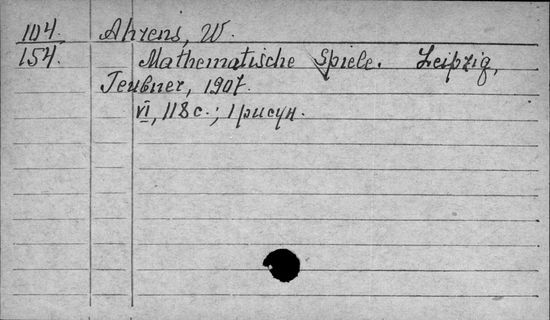 104. Ahrens, W.
154. Mathematische Spiele. Leipzig,
Teubner, 1907.
VI, 118 с.; 1 рисун.